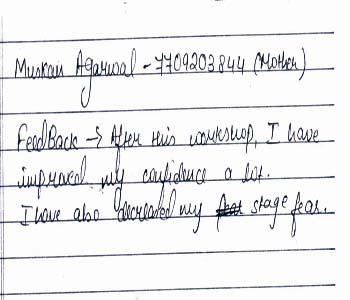 Muskan Agarwal - 7709203844 (Mother)
FeedBack → After this workshop, I have
improved my confidence a lot.
I have also decreased my stage fear.